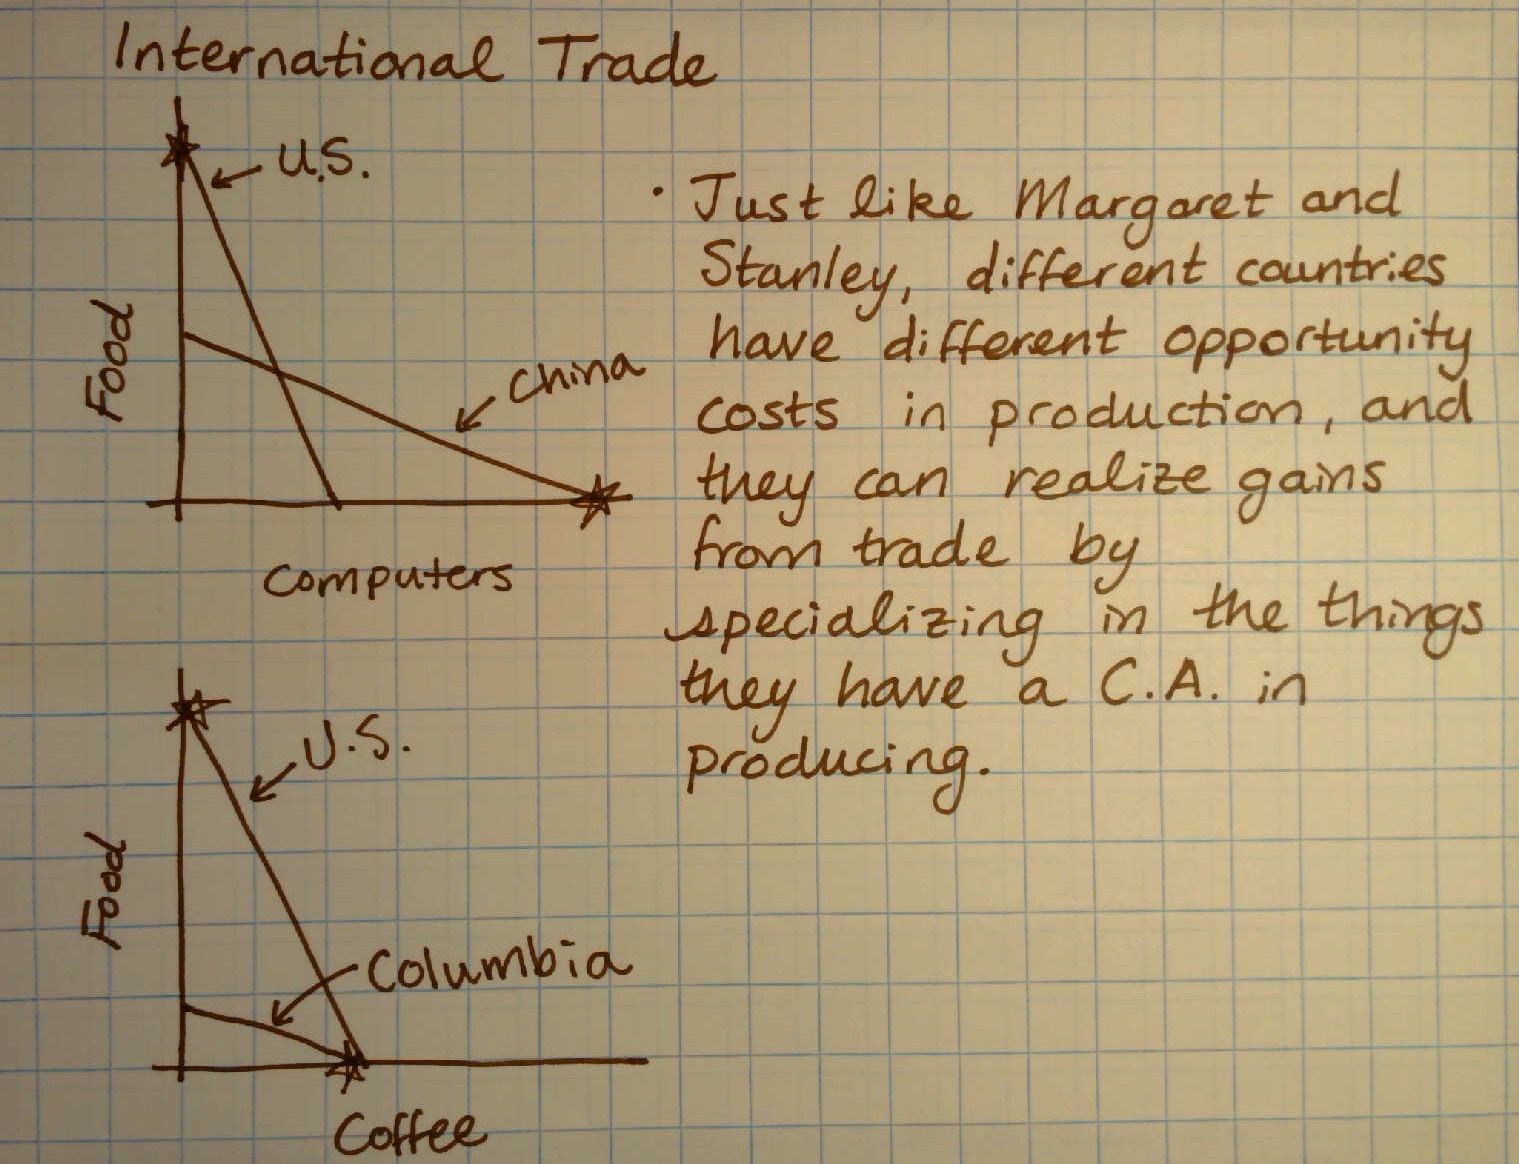 International Trade
U.S.
Food
China
Computers
· Just like Margaret and
Stanley, different countries
have different opportunity
costs in production, and
they can realize gains
from trade by
specializing in the things
they have a C.A. in
producing.
U.S.
Food
Columbia
Coffee